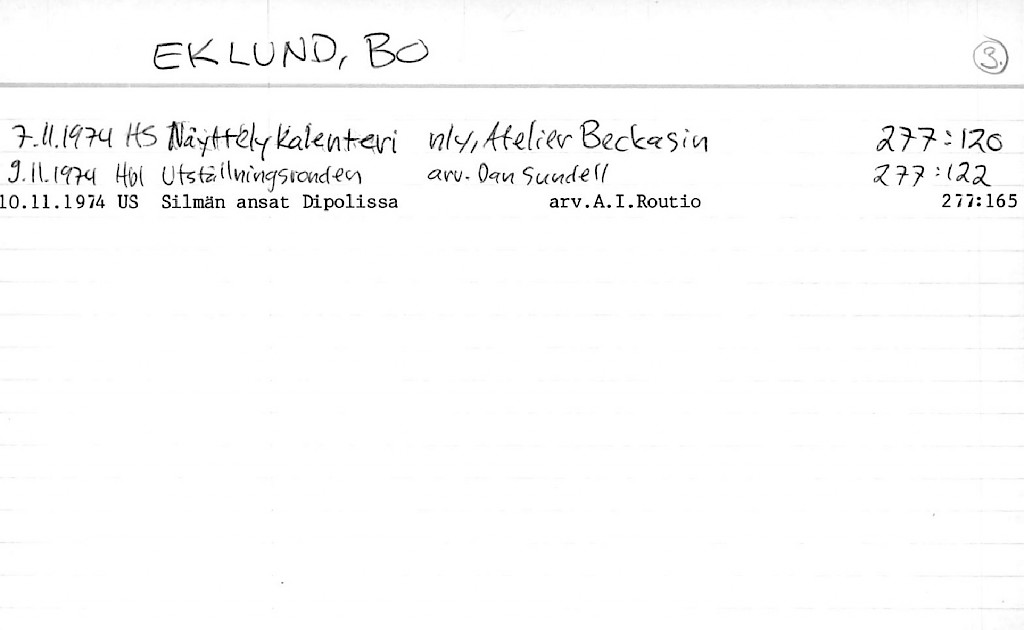 EKLUND, BO 3.
7.11.1974 HS Näyttelykalenteri nly, Atelier Beckasin 277:120
9.11.1974 Hbl Utställningsronden arv. Dan Sundell 277:122
10.11.1974 US Silmän ansat Dipolissa arv.A.I.Routio 277:165